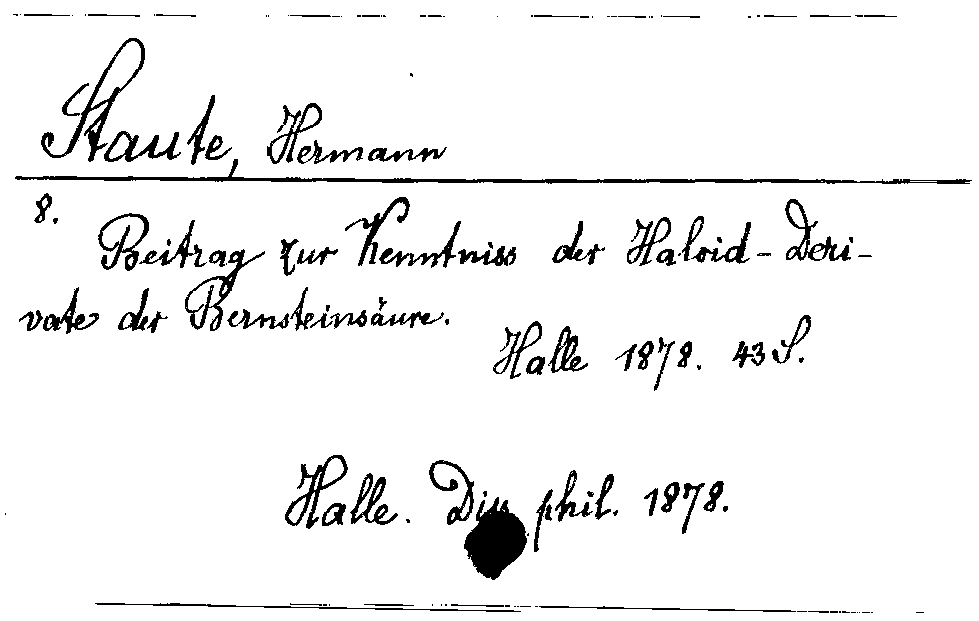 Staute, Hermann
8.
Beitrag zur Kenntniss der Haloid-Deri-
vate der Bernsteinsäure.
Halle 1878. 43 S.
Halle. Diss phil. 1878.